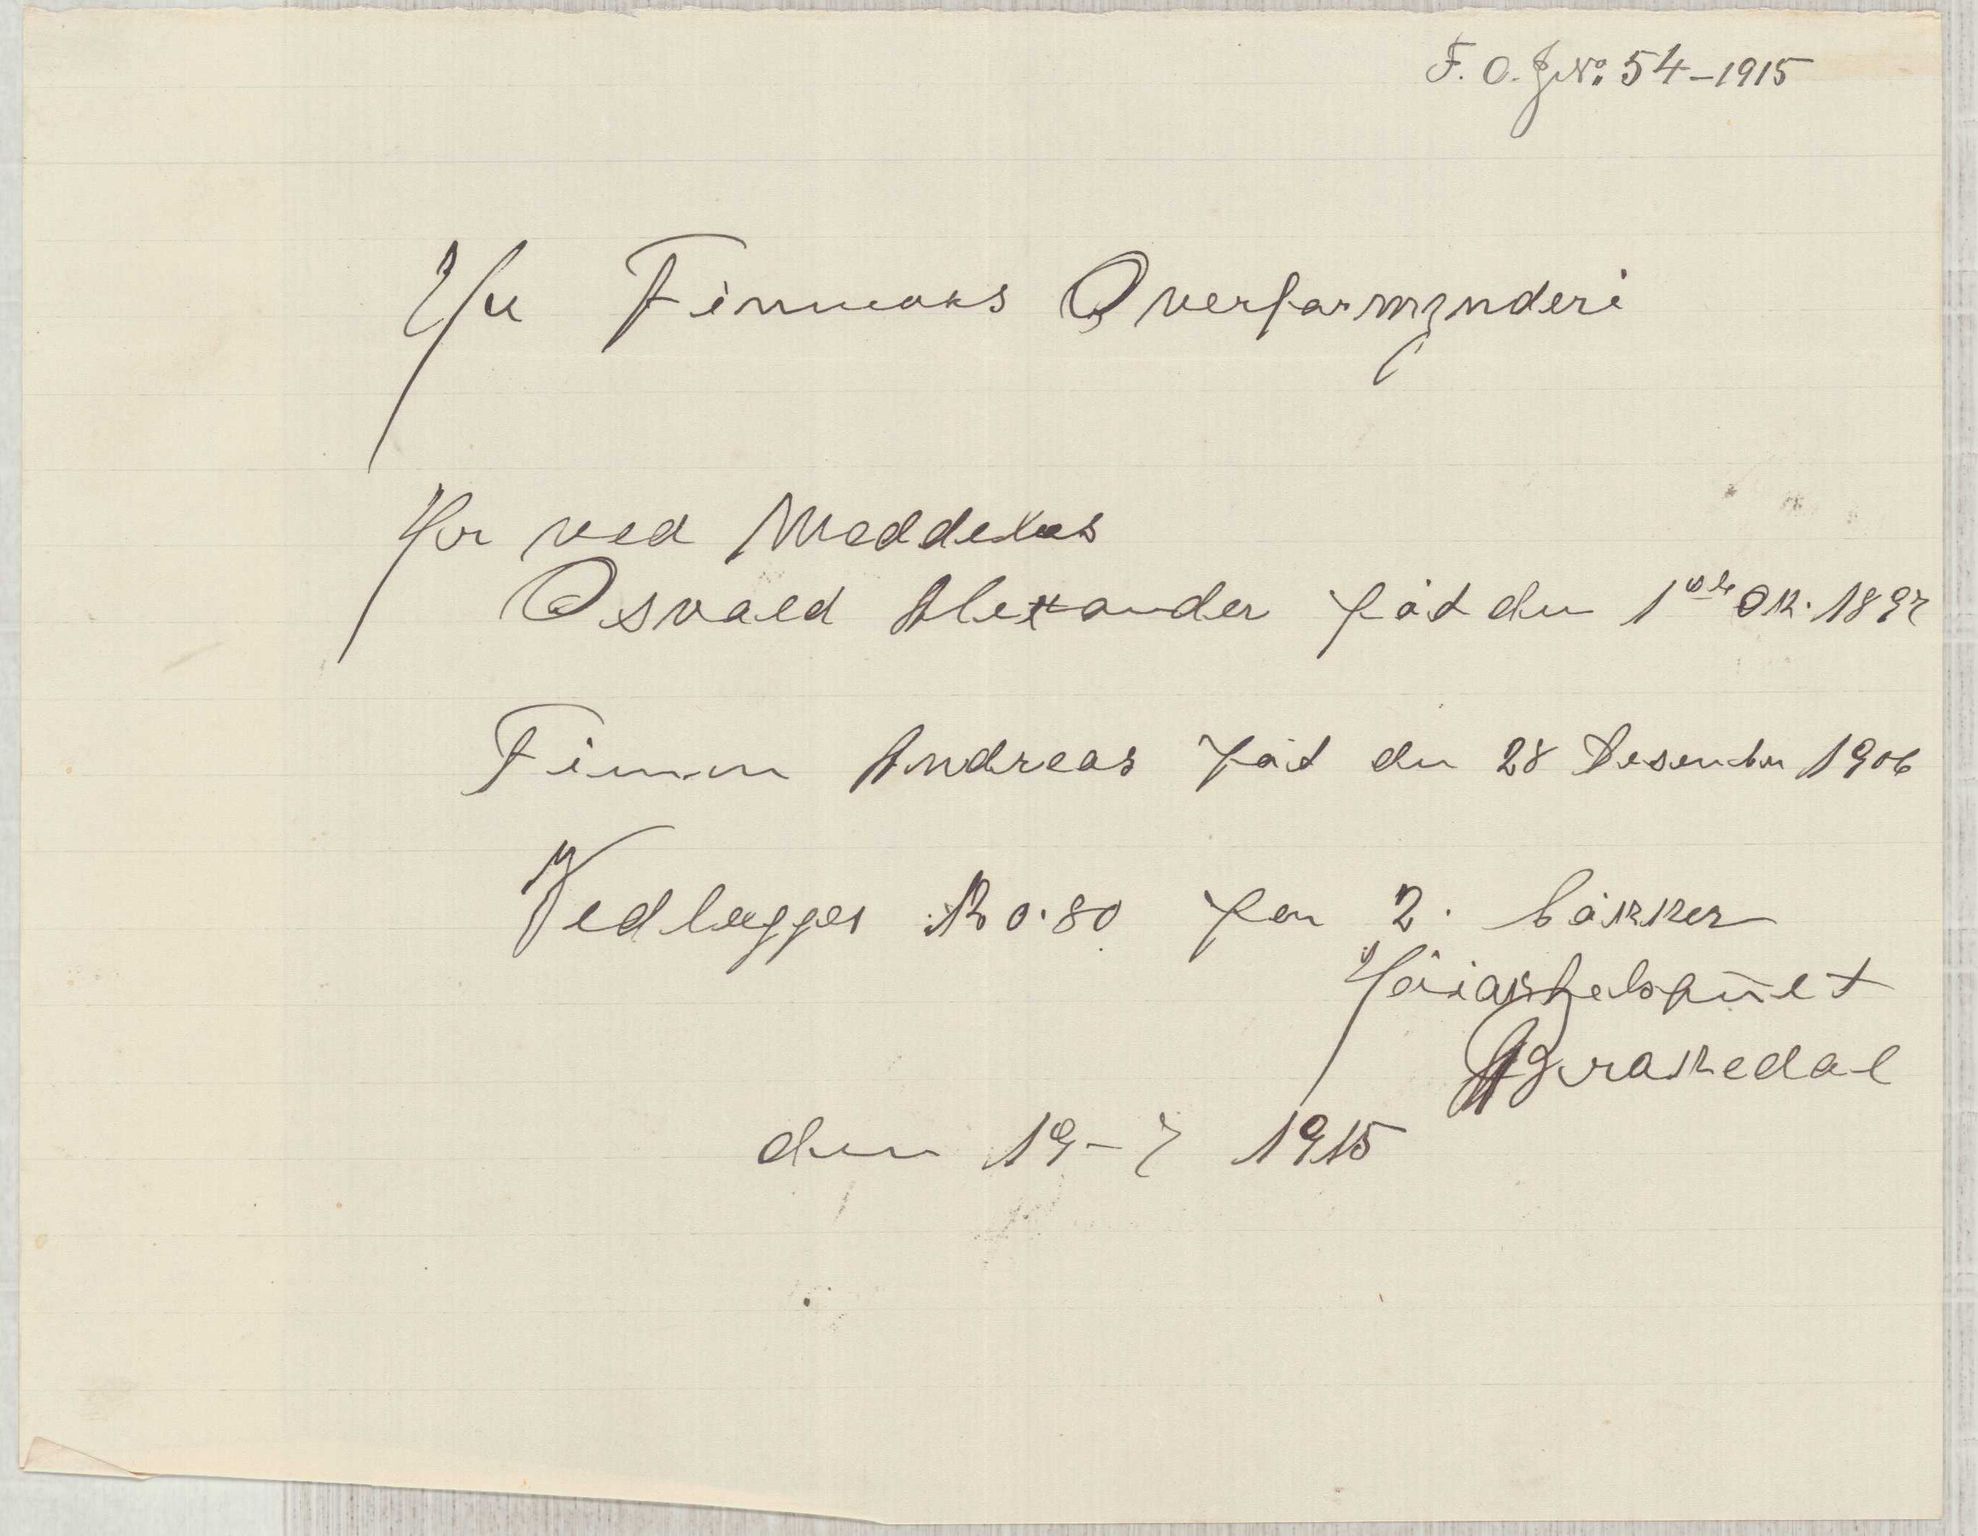 F. O. J No. 54–1915
Finmaks Overformynderi
Her ved Meddeles
Osvald Alexander föd den 1ste Ok. 1897
Finn Andreas föd den 28 Desember 1906
Vedlægges K 0.80 for 2. bökker
Höiagtelsfuлt
Brakedal
den 19–7 1915